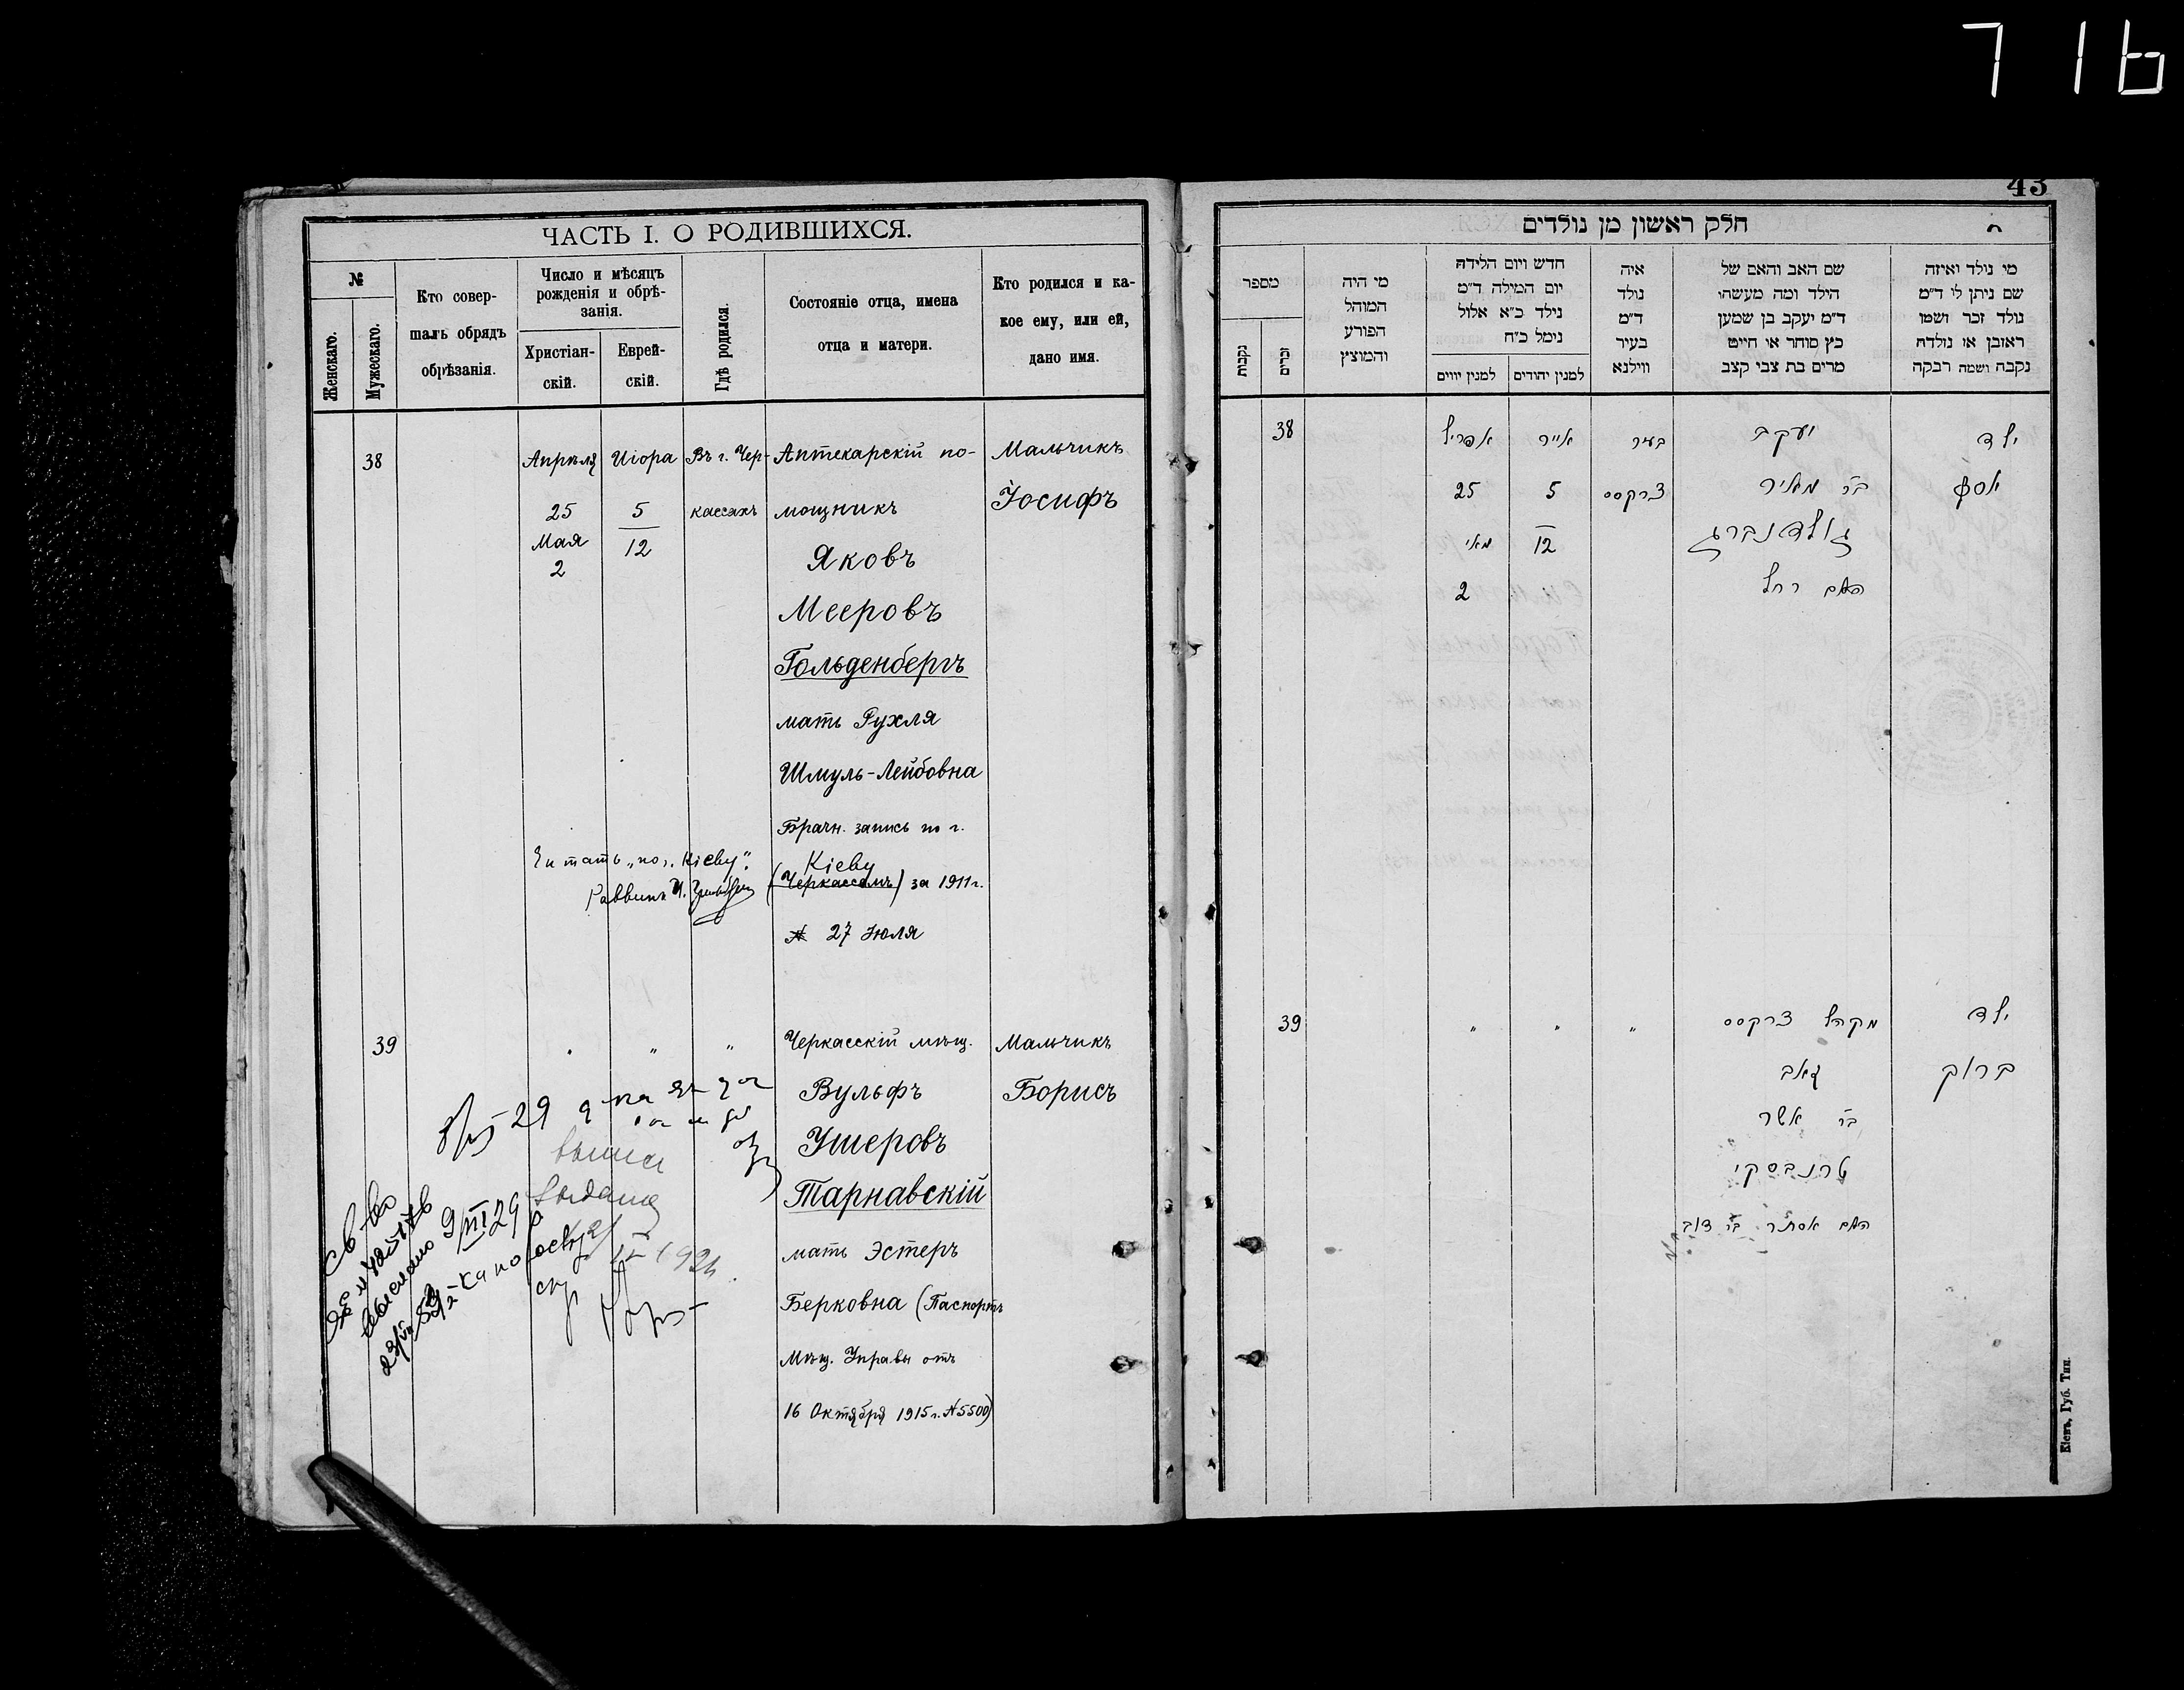 716
43
ЧАСТЬ I. О РОДИВШИХСЯ.
№
Женскаго.
Мужескаго.
Кто совер-
шалъ обрядъ
обрѣзанія.
Число и мѣсяцъ
рожденія и обрѣ-
занія.
Христіан-
скій.
Еврей-
скій.
Гдѣ родился.
Состояніе отца, имена
отца и матери.
Кто родился и ка-
кое ему, или ей,
дано имя.
38
Апрѣля
25
Мая
2
Иіора
5
12
Въ г. Чер-
кассахъ
Аптекарскій по-
мощникъ
Яковъ
Мееровъ
Гольденбергъ
мать Рухля
Шмуль-Лейбовна
Брачн. запись по г.
Кіеву
(Черкассамъ) за 1911 г.
№ 27 Июля
Мальчикъ
Іосифъ
Читать „по г. Кіеву".
Раввинъ
39
" " "
Черкасскій мѣщ.
Вульфъ
Ушеровъ
Тарнавскій
мать Эстеръ
Берковна (Паспортъ
Мѣщ. Управы отъ
16 Октября 1915 г. №5500)
Мальчикъ
Борисъ
29
выдана
выслано 9/III 29
חלק ראשון מן נולדים
מספר
נקבות
זכרים
מי היה
המוהל
הפורע
והמוצץ
חדש ויום הלידה
יום המילה ד"מ
נילד כ"א אלול
נימל כ"ח
למנין יווים
למנין יהודים
איה
נולד
ד"מ
בעיר
ווילנא
שם האב והאם של
הילד ומה מעשהו
ד"מ יעקב בן שמען
כץ סוחר או חייט
מרים בת צבי קצב
מי נולד ואיזה
שם ניתן לי ד"מ
נולד זכר ושמו
ראובן או נולדה
נקבה ושמה רבקה
38
אפריל
25
מאי
2
אייר
5
12
בעיר
צרקסס
יעקב
בר מאיר
גולדנברג
האם רחל
ילד
יוסף
39
" " "
מקהל צרקסס
זאב
בר אשר
טרנבסקי
האם אסתר בר דוב
ילד
ברוך
Кіевъ, Губ. Тип.